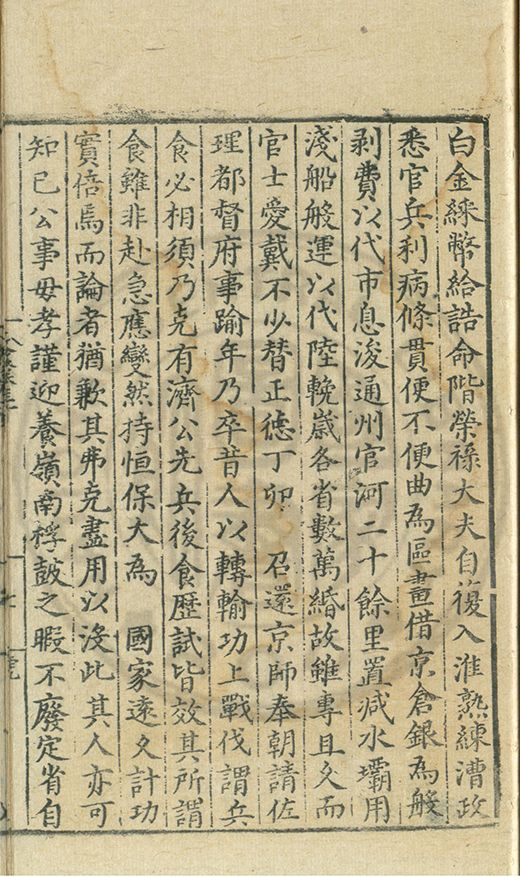 白金綵幣給誥命階榮祿大夫自復入淮熟練漕政
悉官兵利病條貫便不便曲為區畫借京倉銀為般
剥費以代市息浚通州官河二十餘里置减水壩用
淺船般運以代陸輓歲各省數萬緡故雖專且久而
官士愛戴不少替正徳丁卯 召還京師奉朝請佐
理都督府事踰年乃卒昔人以轉輸功上戰伐謂兵
食必相須乃克有濟公先兵後食歷試皆效其所謂
食雖非赴急應變然持恒保大為 國家遠久計功
實倍焉而論者猶歉其弗克盡用以沒此其人亦可
知已公事毋孝謹迎養嶺南桴鼓之暇不廢定省自